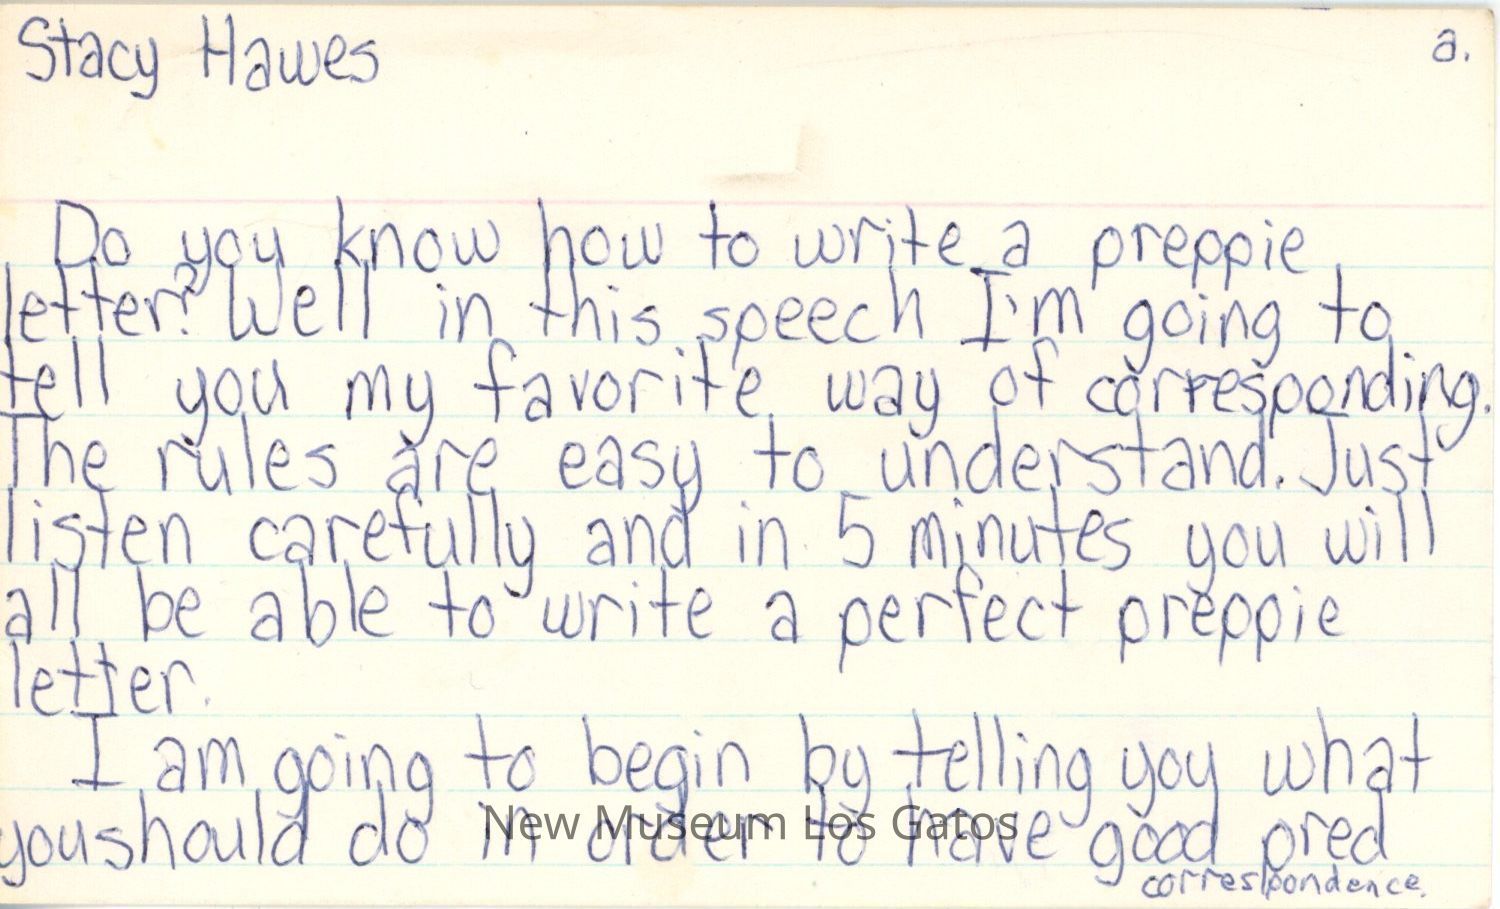 Stacy Hawes
a.
Do you know how to write a preppie
letter? Well in this speech I'm going to
tell you my favorite way of corresponding.
The rules are easy to understand. Just
listen carefully and in 5 minutes you will
all be able to write a perfect preppie
letter.
I am going to begin by telling you what
you should do in order to have good pred
correspondence.
New Museum Los Gatos